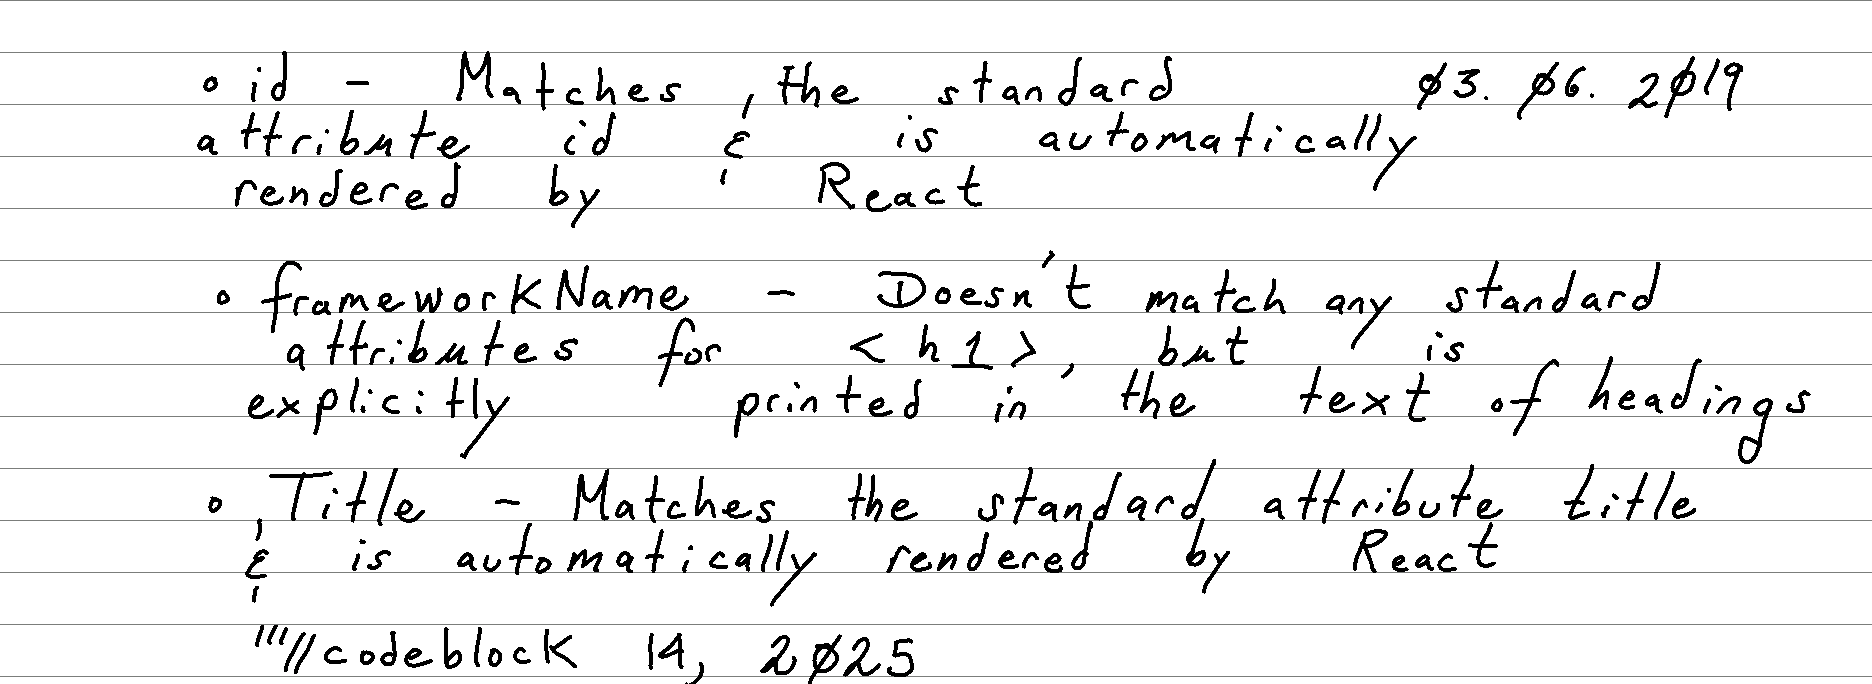 • id - Matches the standard 03. 06. 2019
attribute id & is automatically
rendered by React
• frameworkName - Doesn't match any standard
attributes for <h1>, but is
explicitly printed in the text of headings
• Title - Matches the standard attribute title
& is automatically rendered by React
'''//codeblock 14, 2025